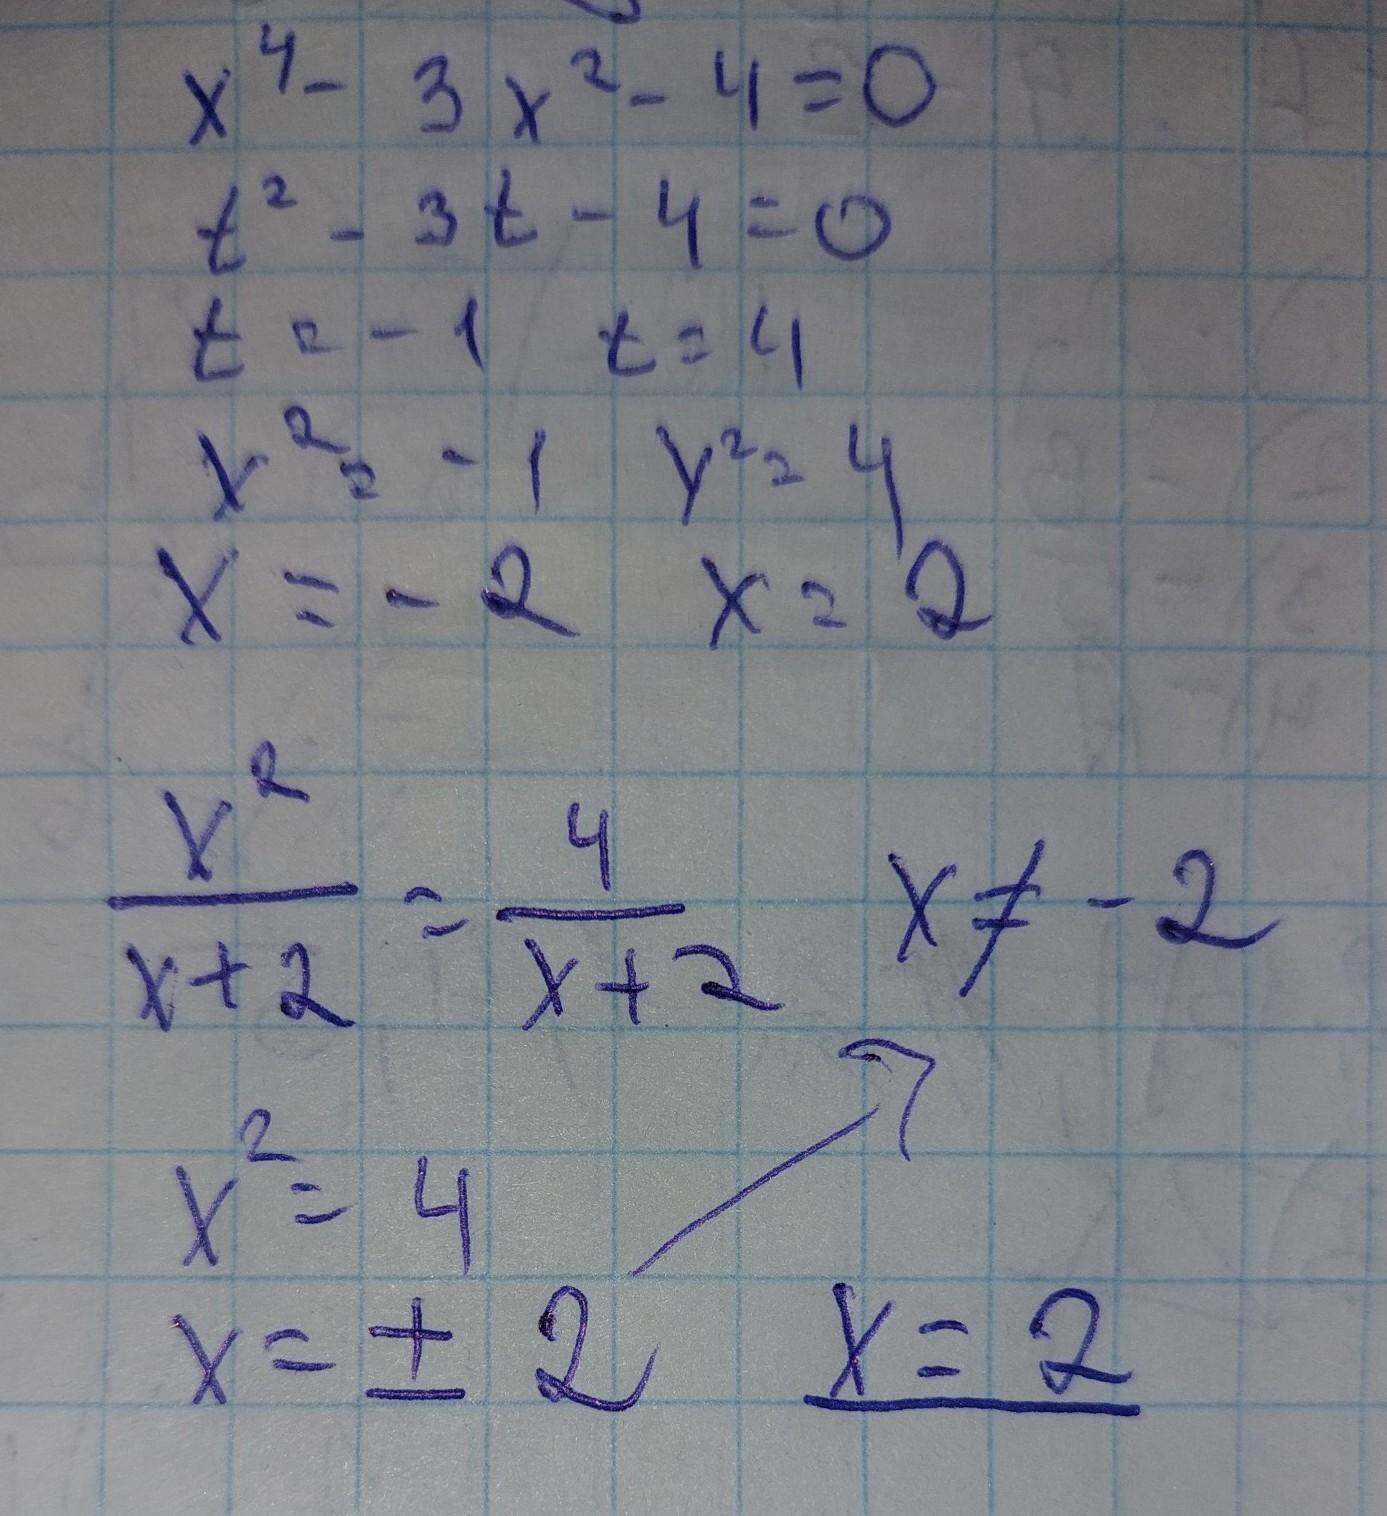 x⁴ - 3x² - 4 = 0
t² - 3t - 4 = 0
t = -1 t = 4
x² = -1 x² = 4
x = -2 x = 2
x²/(x+2) = 4/(x+2) x ≠ -2
x² = 4
x = ± 2 x = 2